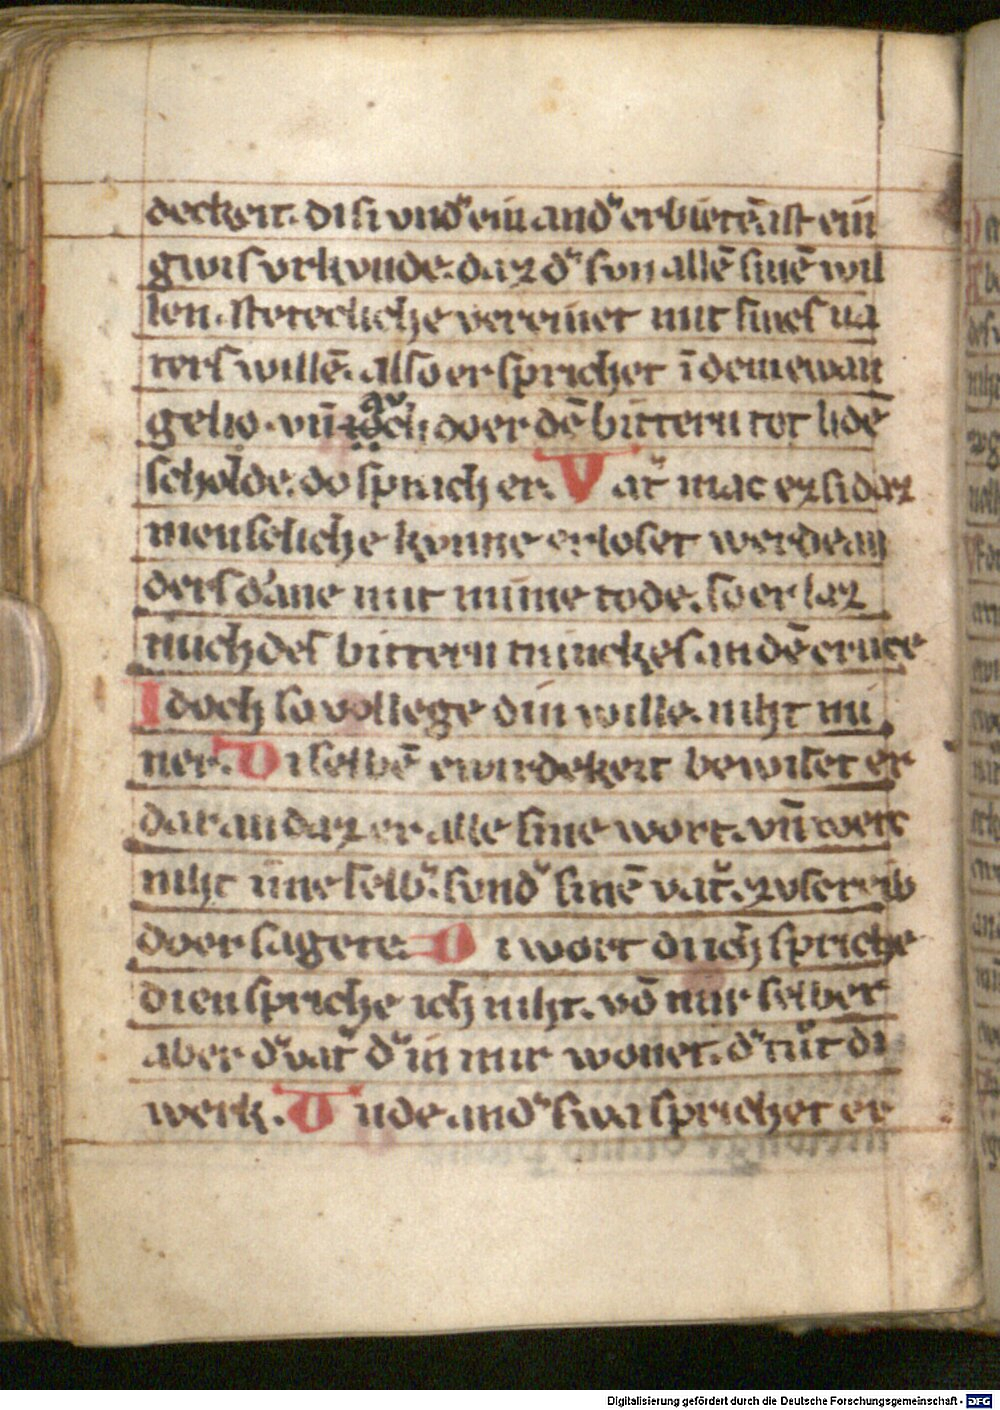 deckeit. di si vnd' ein and' erbietē. ist ein
gwis vrkvnde. daz d' svn allē sinē wil
len. steteclichē vereinet mit sines va
ters willē. also er sprichet ī dem ewan
gelio. vn̄ ǒch do er dē bittern tot lidē
scholde. do sprach er. Vat' mac ez si daz
menscliche kvnne erloset werde an
ders d'ane mit mime tode. so erlaz
mich des bittern trinckes an dē crvce
Idoch so volliege din wille. niht mi
ner. Diselbē ewirdekeit bewiset er
daran daz er alle sine wort. vn̄ werc
niht ime selb'. svnd' sinē vat'. zvscreib
do er sagete. Di wort di ich spriche
dien spriche ich niht. vō mir selber
aber d' vat' d' in mir wonet. d' tůt di
werk. Vnde and' swa sprichet er
Digitalisierung gefördert durch die Deutsche Forschungsgemeinschaft - DFG